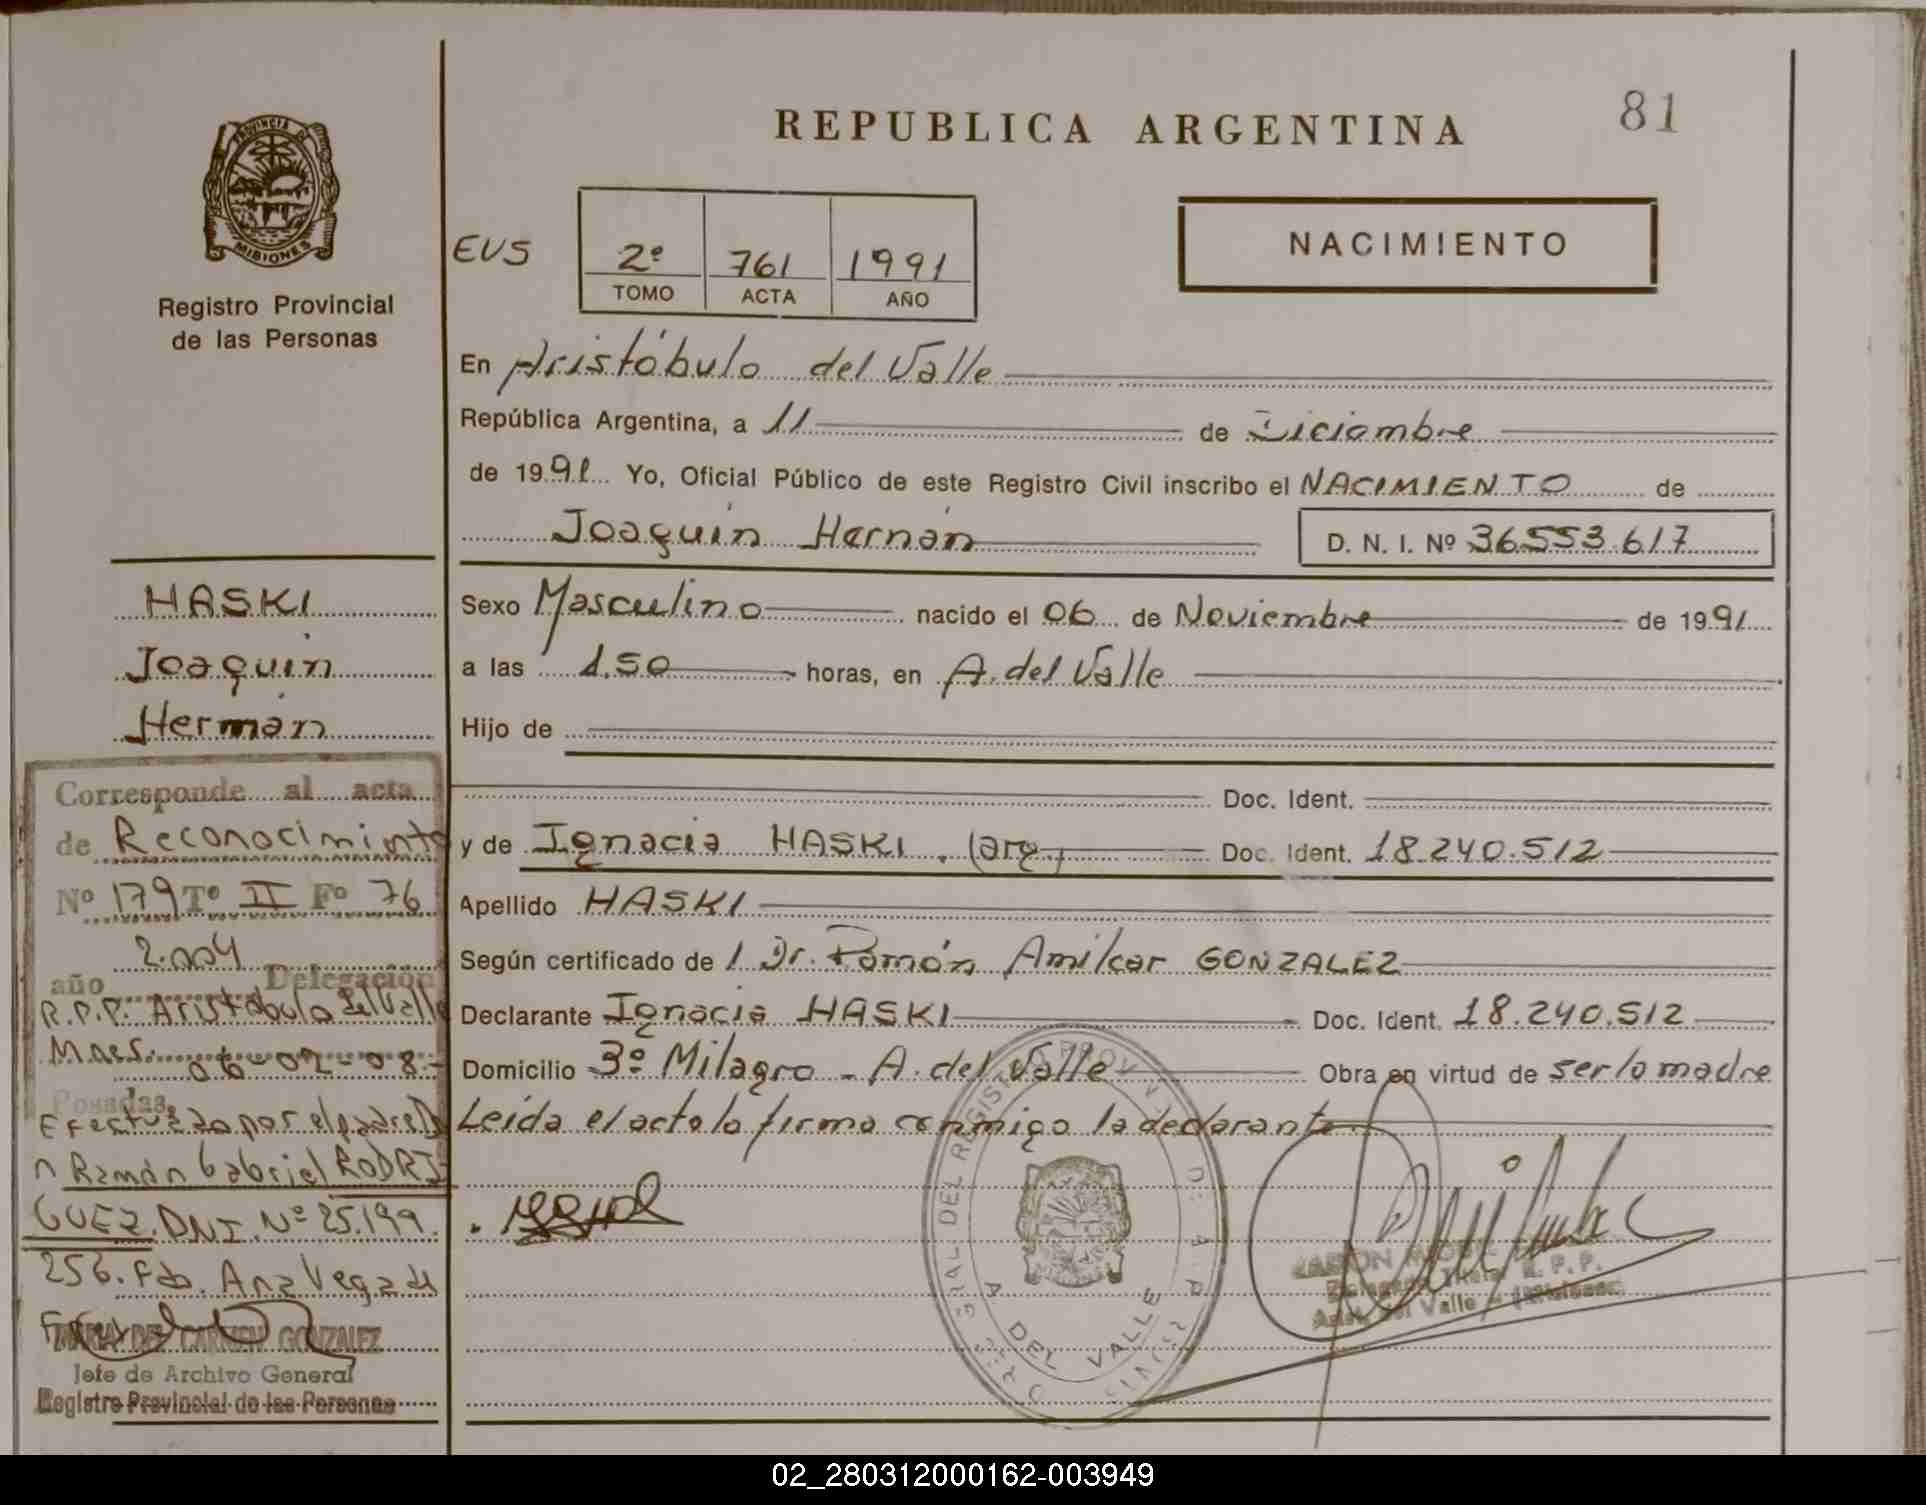 81
REPUBLICA ARGENTINA
PROVINCIA DE
MISIONES
Registro Provincial
de las Personas
EUS
2º 761 1991
TOMO ACTA AÑO
NACIMIENTO
En Aristóbulo del Valle
República Argentina, a 11 de Diciembre
de 1991 Yo, Oficial Público de este Registro Civil inscribo el NACIMIENTO de
Joaquin Hernán D. N. I. Nº 36553.617
Sexo Masculino nacido el 06 de Noviembre de 1991
a las 1,50 horas, en A. del Valle
Hijo de
Doc. Ident.
y de Ignacia HASKI. (arg.) Doc. Ident. 18.240.512
Apellido HASKI
Según certificado de 1 Dr. Ramón Amilcar GONZALEZ
Declarante Ignacia HASKI Doc. Ident. 18.240.512
Domicilio 3º Milagro - A. del Valle Obra en virtud de ser la madre
Leída el acta la firma conmigo la declarante
HASKI
Joaquin
Hernán
Corresponde al acta
de Reconocimiento
Nº 179 Tº II Fº 76
año 2.004 Delegación
R.P.P. Aristóbulo del Valle
Mnes. 06-02-08-
Posadas,
Efectuado por el padre D
n Ramón Gabriel RODRI
GUEZ. DNI. Nº 25.199.
256. Fdo. Ana Vega de
MARIA DEL CARMEN GONZALEZ
Jefe de Archivo General
Registro Provincial de las Personas
A DEL VALLE
Delegado Titular R. P. P.
Arist. del Valle - (Misiones)
02_280312000162-003949